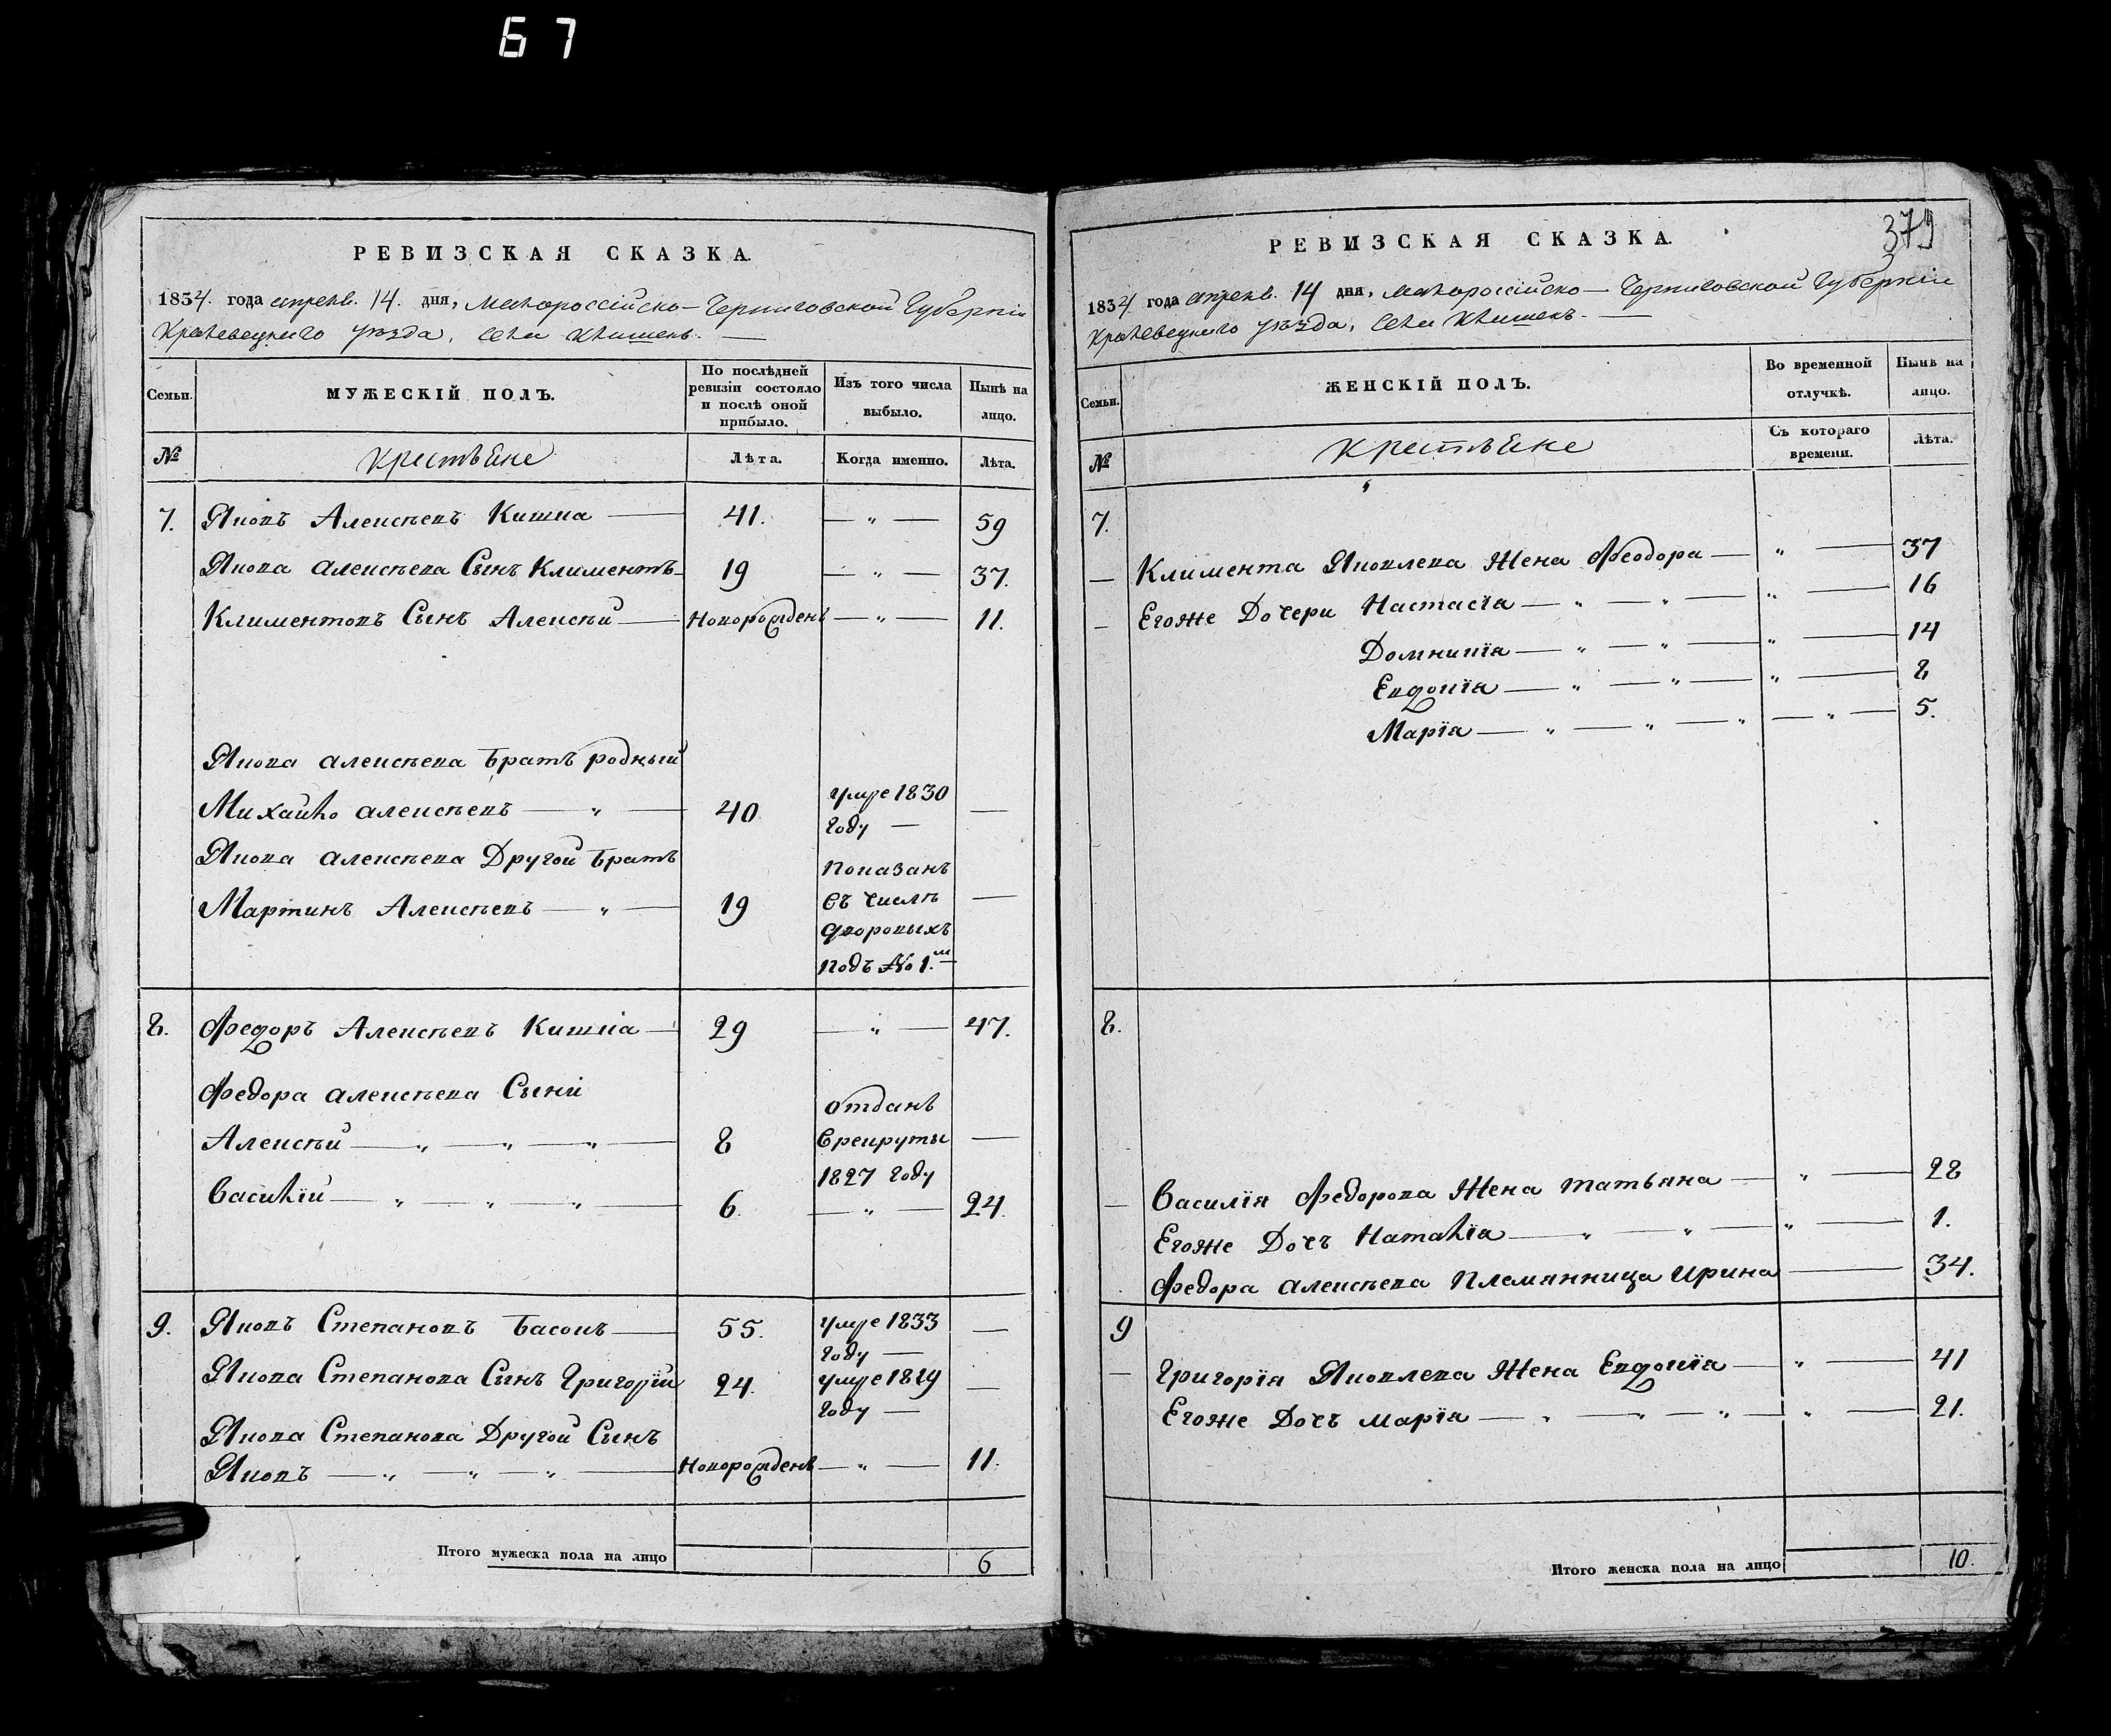 67
РЕВИЗСКАЯ СКАЗКА.
1834. года апреля. 14. дня, Малороссійско-Черниговской Губерніи
Кролевецкаго уѣзда, села Клишекъ.
Семьи.
МУЖЕСКІЙ ПОЛЪ.
По послѣдней ревизіи состояло и послѣ оной прибыло.
Изъ того числа выбыло.
Нынѣ на лицо.
№
Крестьяне
Лѣта.
Когда именно.
Лѣта.
7. Яковъ Алексѣевъ Кишка — 41. — „ — 59
Якова Алексѣева Сынъ Климентъ — 19 — „ — 37.
Климентовъ Сынъ Алексѣй — Новорожденъ — „ — 11.
Якова Алексѣева Братъ родный
Михайло Алексѣевъ — „ — 40 умре 1830 году — —
Якова Алексѣева Другой Братъ
Мартинъ Алексѣевъ — „ — 19 показанъ въ числѣ дворовыхъ подъ № 1.м —
8. Федоръ Алексѣевъ Кишка — 29 — „ — 47.
Федора Алексѣева Сыны
Алексѣй — „ — „ — „ — 8 отданъ врекруты 1827 году —
Василій — „ — „ — „ — 6. — „ — 24.
9. Яковъ Степановъ Басокъ — 55. умре 1833 году — —
Якова Степанова Сынъ Григорій 24. умре 1829 году — —
Якова Степанова Другой Сынъ
Яковъ — „ — „ — „ — Новорожденъ — „ — 11.
Итого мужеска пола на лицо 6
379
РЕВИЗСКАЯ СКАЗКА.
1834 года апреля. 14 дня, Малороссійско — Черниговской Губерніи
Кролевецкаго уѣзда, села Клишекъ. —
Семьи.
ЖЕНСКІЙ ПОЛЪ.
Во временной отлучкѣ.
Нынѣ на лицо.
№
Крестьяне
Съ котораго времени.
Лѣта.
7.
— Климента Яковлева Жена Феодора — „ — 37
— Егоже Дочери Настасія — „ — „ — „ — 16
Домникія — „ — „ — „ — 14
Евдокія — „ — „ — „ — 8
Марія — „ — „ — „ — „ — 5.
8.
— Василія Федорова Жена Татьяна — „ — 28
Егоже Дочъ Наталія — „ — „ — „ — 1.
Федора Алексѣева Племянница Ирина — 34.
9
— Григорія Яковлева Жена Евдокія — „ — 41
Егоже Дочъ Марія — „ — „ — „ — „ — 21.
Итого женска пола на лицо 10.